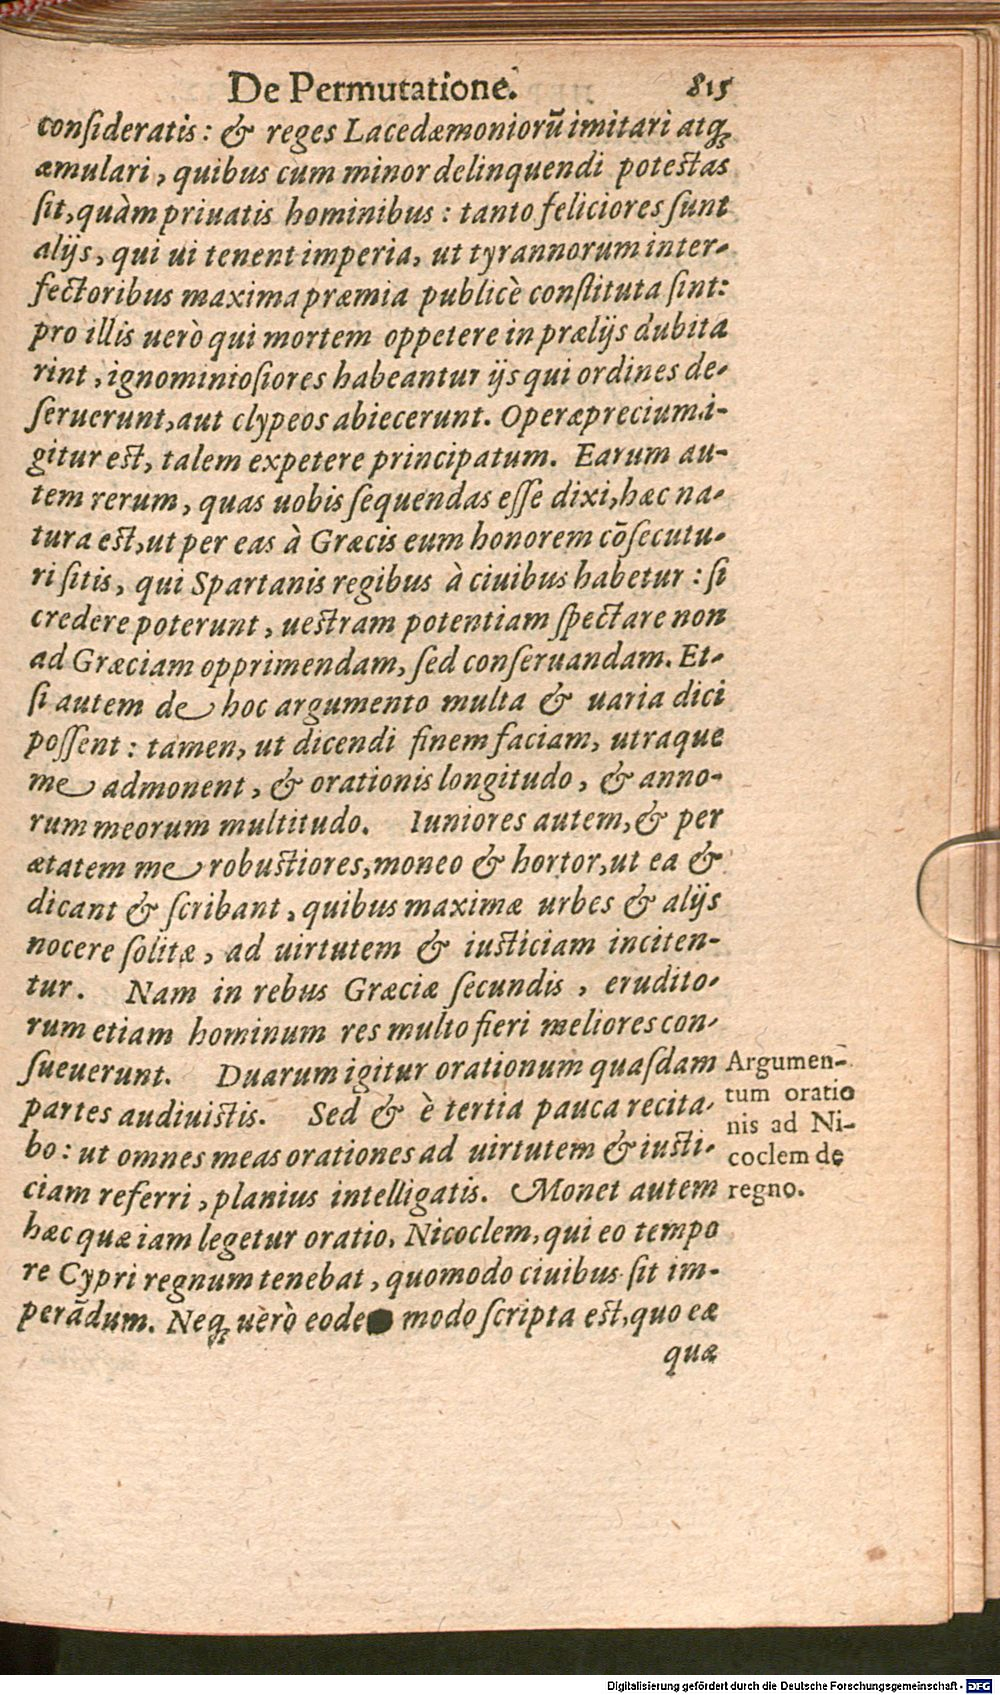 De Permutatione. 815
conſideratis: & reges Lacedæmoniorũ imitari atq́ꝫ
æmulari, quibus cum minor delinquendi potestas
ſit, quàm priuatis hominibus: tanto feliciores ſunt
alijs, qui ui tenent imperia, ut tyrannorum inter-
fectoribus maxima præmia publicè conſtituta ſint:
pro illis uerò qui mortem oppetere in prælijs dubita
rint, ignominioſiores habeantur ijs qui ordines de-
ſeruerunt, aut clypeos abiecerunt. Operæprecium i-
gitur est, talem expetere principatum. Earum au-
tem rerum, quas uobis ſequendas eſſe dixi, hæc na-
tura est, ut per eas à Græcis eum honorem cõſecutu-
ri ſitis, qui Spartanis regibus à ciuibus habetur: ſi
credere poterunt, uestram potentiam ſpectare non
ad Græciam opprimendam, ſed conſeruandam. Et-
ſi autem de hoc argumento multa & uaria dici
poſſent: tamen, ut dicendi finem faciam, utraque
me admonent, & orationis longitudo, & anno-
rum meorum multitudo. Iuniores autem, & per
ætatem me robustiores, moneo & hortor, ut ea &
dicant & ſcribant, quibus maximæ urbes & alijs
nocere ſolitæ, ad uirtutem & iusticiam inciten-
tur. Nam in rebus Græciæ ſecundis, erudito-
rum etiam hominum res multo fieri meliores con-
ſueuerunt. Duarum igitur orationum quaſdam
partes audiuistis. Sed & è tertia pauca recita-
bo: ut omnes meas orationes ad uirtutem & iusti-
ciam referri, planius intelligatis. Monet autem
hæc quæ iam legetur oratio, Nicoclem, qui eo tempo
re Cypri regnum tenebat, quomodo ciuibus ſit im-
perãdum. Neq́ꝫ uerò eode modo ſcripta est, quo eæ
quæ
Argumen-
tum oratio
nis ad Ni-
coclem de
regno.
Digitalisierung gefördert durch die Deutsche Forschungsgemeinschaft - DFG